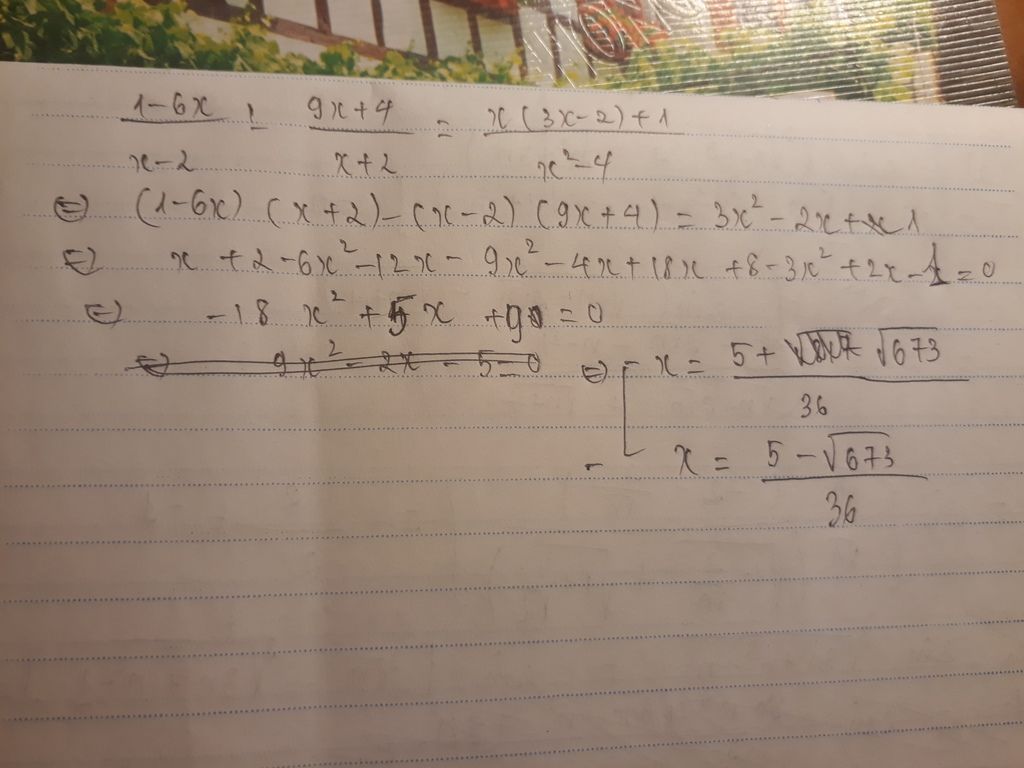 1-6x / x-2 - 9x+4 / x+2 = x(3x-2)+1 / x²-4
⇔ (1-6x) (x+2) - (x-2) (9x+4) = 3x² - 2x + 1
⇔ x + 2 - 6x² - 12x - 9x² - 4x + 18x + 8 - 3x² + 2x - 1 = 0
⇔ -18x² + 5x + 9 = 0
⇔ 9x² - 2x - 5 = 0
⇔ [ x = 5 + √673 / 36
x = 5 - √673 / 36